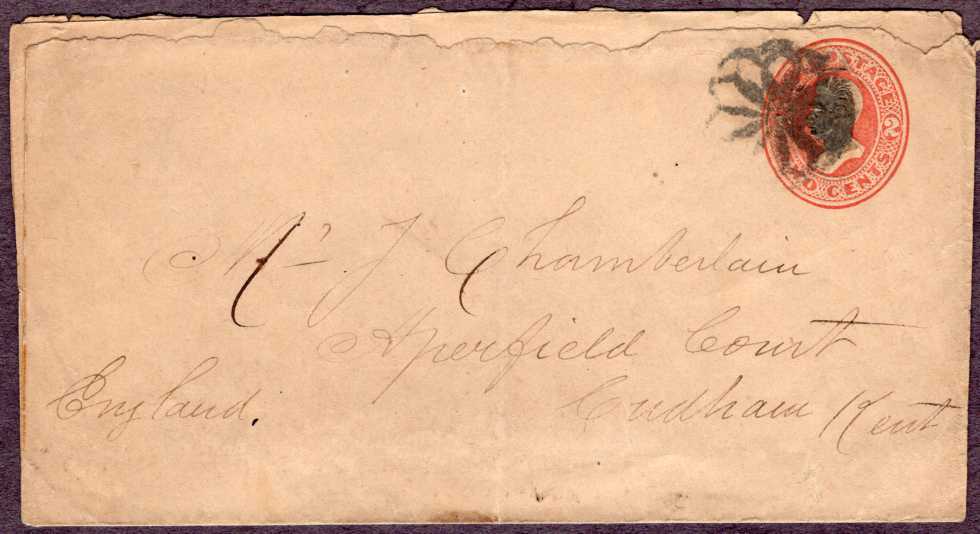 POSTAGE
2
CENTS
Mr J Chamberlain
Aperfield Court
England. Cudham Kent